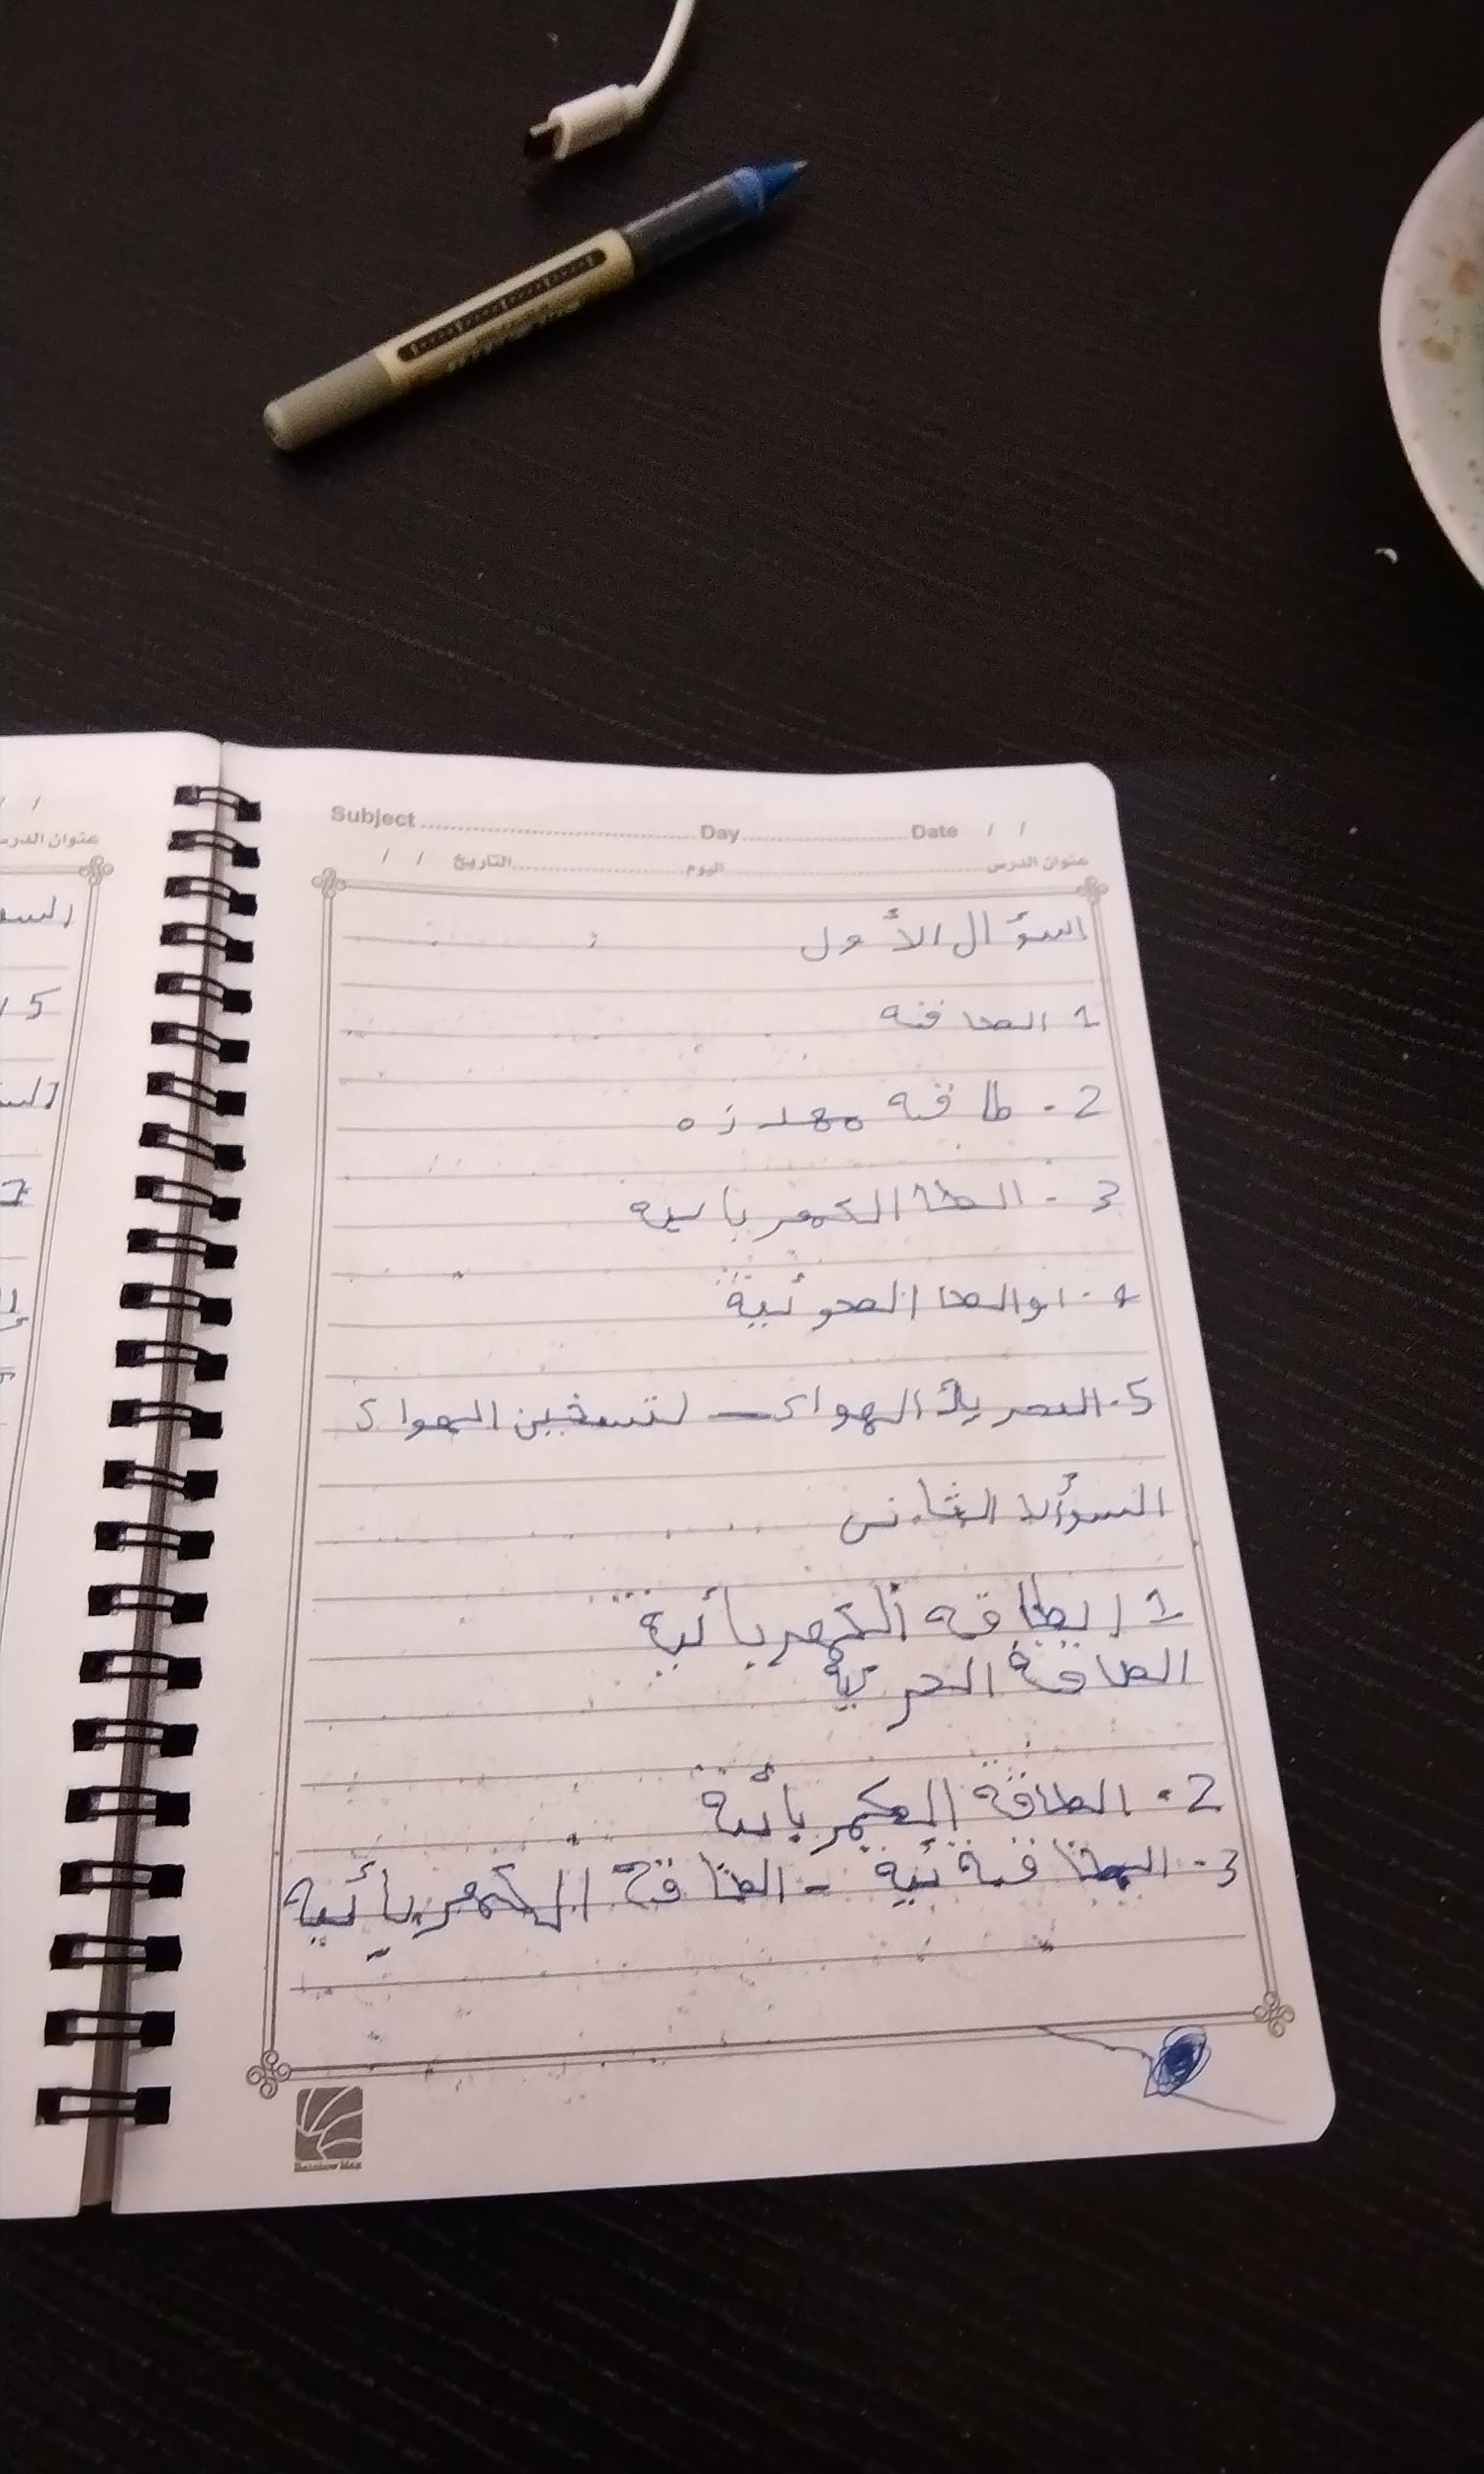 Subject Day Date / /
عنوان الدرس اليوم التاريخ / /
اسؤال الأول
1 الطاقه
2 - طاقه مهدره
3 - الطا الكهربايه
4 - اوالطا الضوئية
5 - الهواء - لتسخين الهواء
السؤال الثاني
1 الطاقه الكهربائية
الطاقة الحركية
2 - الطاقة الكهربائية
3 - - الطاقة الكهربائيه
Rainbow Max
عنوان الدرس
/ /
5